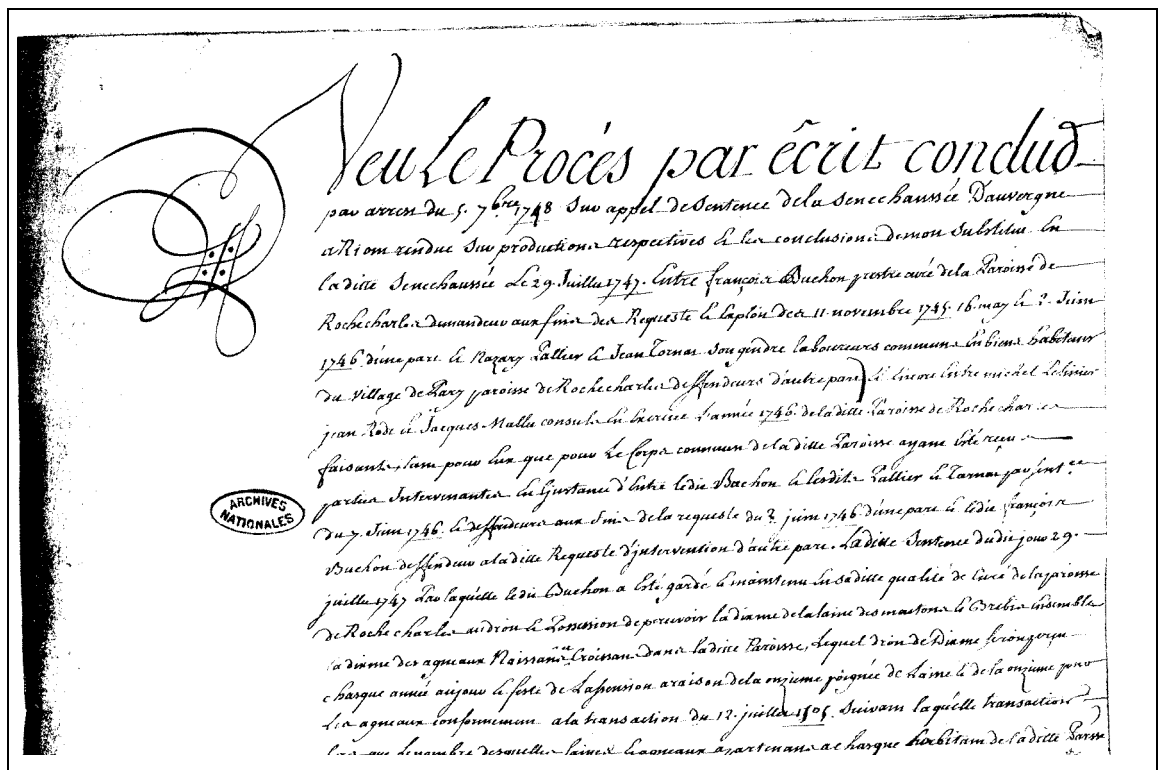 Veu Le Procès par écrit conclud
par arrest du 5. 7bre 1748 Sur appel de Sentence de la Senechaussée D'auvergne
a Riom rendue Sur productions respectives et les conclusions de mon Substitut En
la ditte Senechaussée Le 29. Juillet 1747. Entre françois Buchon prestre curé de la Paroisse de
Rochecharles demandeur aux fins des Requeste et Exploit des 11. novembre 1745. 16. may et 2. Juin
1746 d'une part et Nazary Pallier et Jean Tornas Son gendre laboureurs communs En biens habitans
du Village de Pary paroisse de Rochecharles deffendeurs d'autre part Et Encore Entre michel
jean Rode et Jacques Mallet consuls En Exercice L'année 1746. de la ditte Paroisse de Rochecharles
faisants, tant pour Eux que pour Le Corps commun de la ditte Paroisse ayant Esté reçu
parties Intervenantes En L'justance d'Entre ledit Buchon et lesdits Pallier et Tarnas par sentce
du 7. Juin 1746. et deffendeurs aux fins de la requeste du 2 juin 1746 d'une part et ledit françois
Buchon deffendeur a la ditte Requeste d'jntervention d'autre part. La ditte Sentence dudit jour 29.
juillet 1747 Par laquelle ledit Buchon a Esté gardé et maintenu En sa ditte qualité de Curé de la paroisse
de Rochecharles au droit et Possession de percevoir la dixme de la laine des moutons et Brebis ensemble
la dixme des agneaux Naissants et Croissant dans la ditte Paroisse, Lequel droit de Dixme seroit perçu
chasque année au jour et feste de L'assension a raison de la onzieme poignée de Laine et de la onzieme pour
Les agneaux conformement a la transaction du 12. juillet 1505. Suivant laquelle transaction
le nombre desquelles laines et agneaux apartenans a chasque habitant de la ditte Paroisse
ARCHIVES
NATIONALES